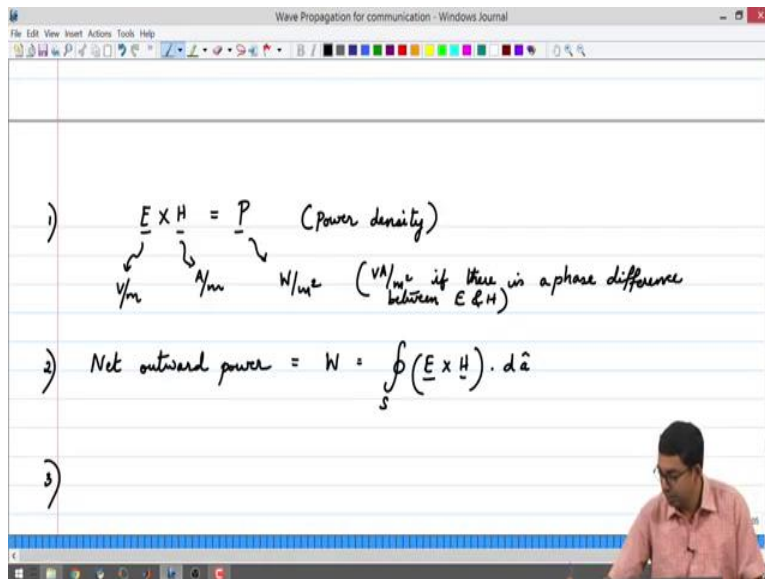 Wave Propagation for communication - Windows Journal
File Edit View Insert Actions Tools Help
B I
1) E X H = P (Power density)
V/m A/m W/m² (VA/m² if there is a phase difference
between E & H)
2) Net outward power = W = ∮ (E x H) . dâ
S
3)